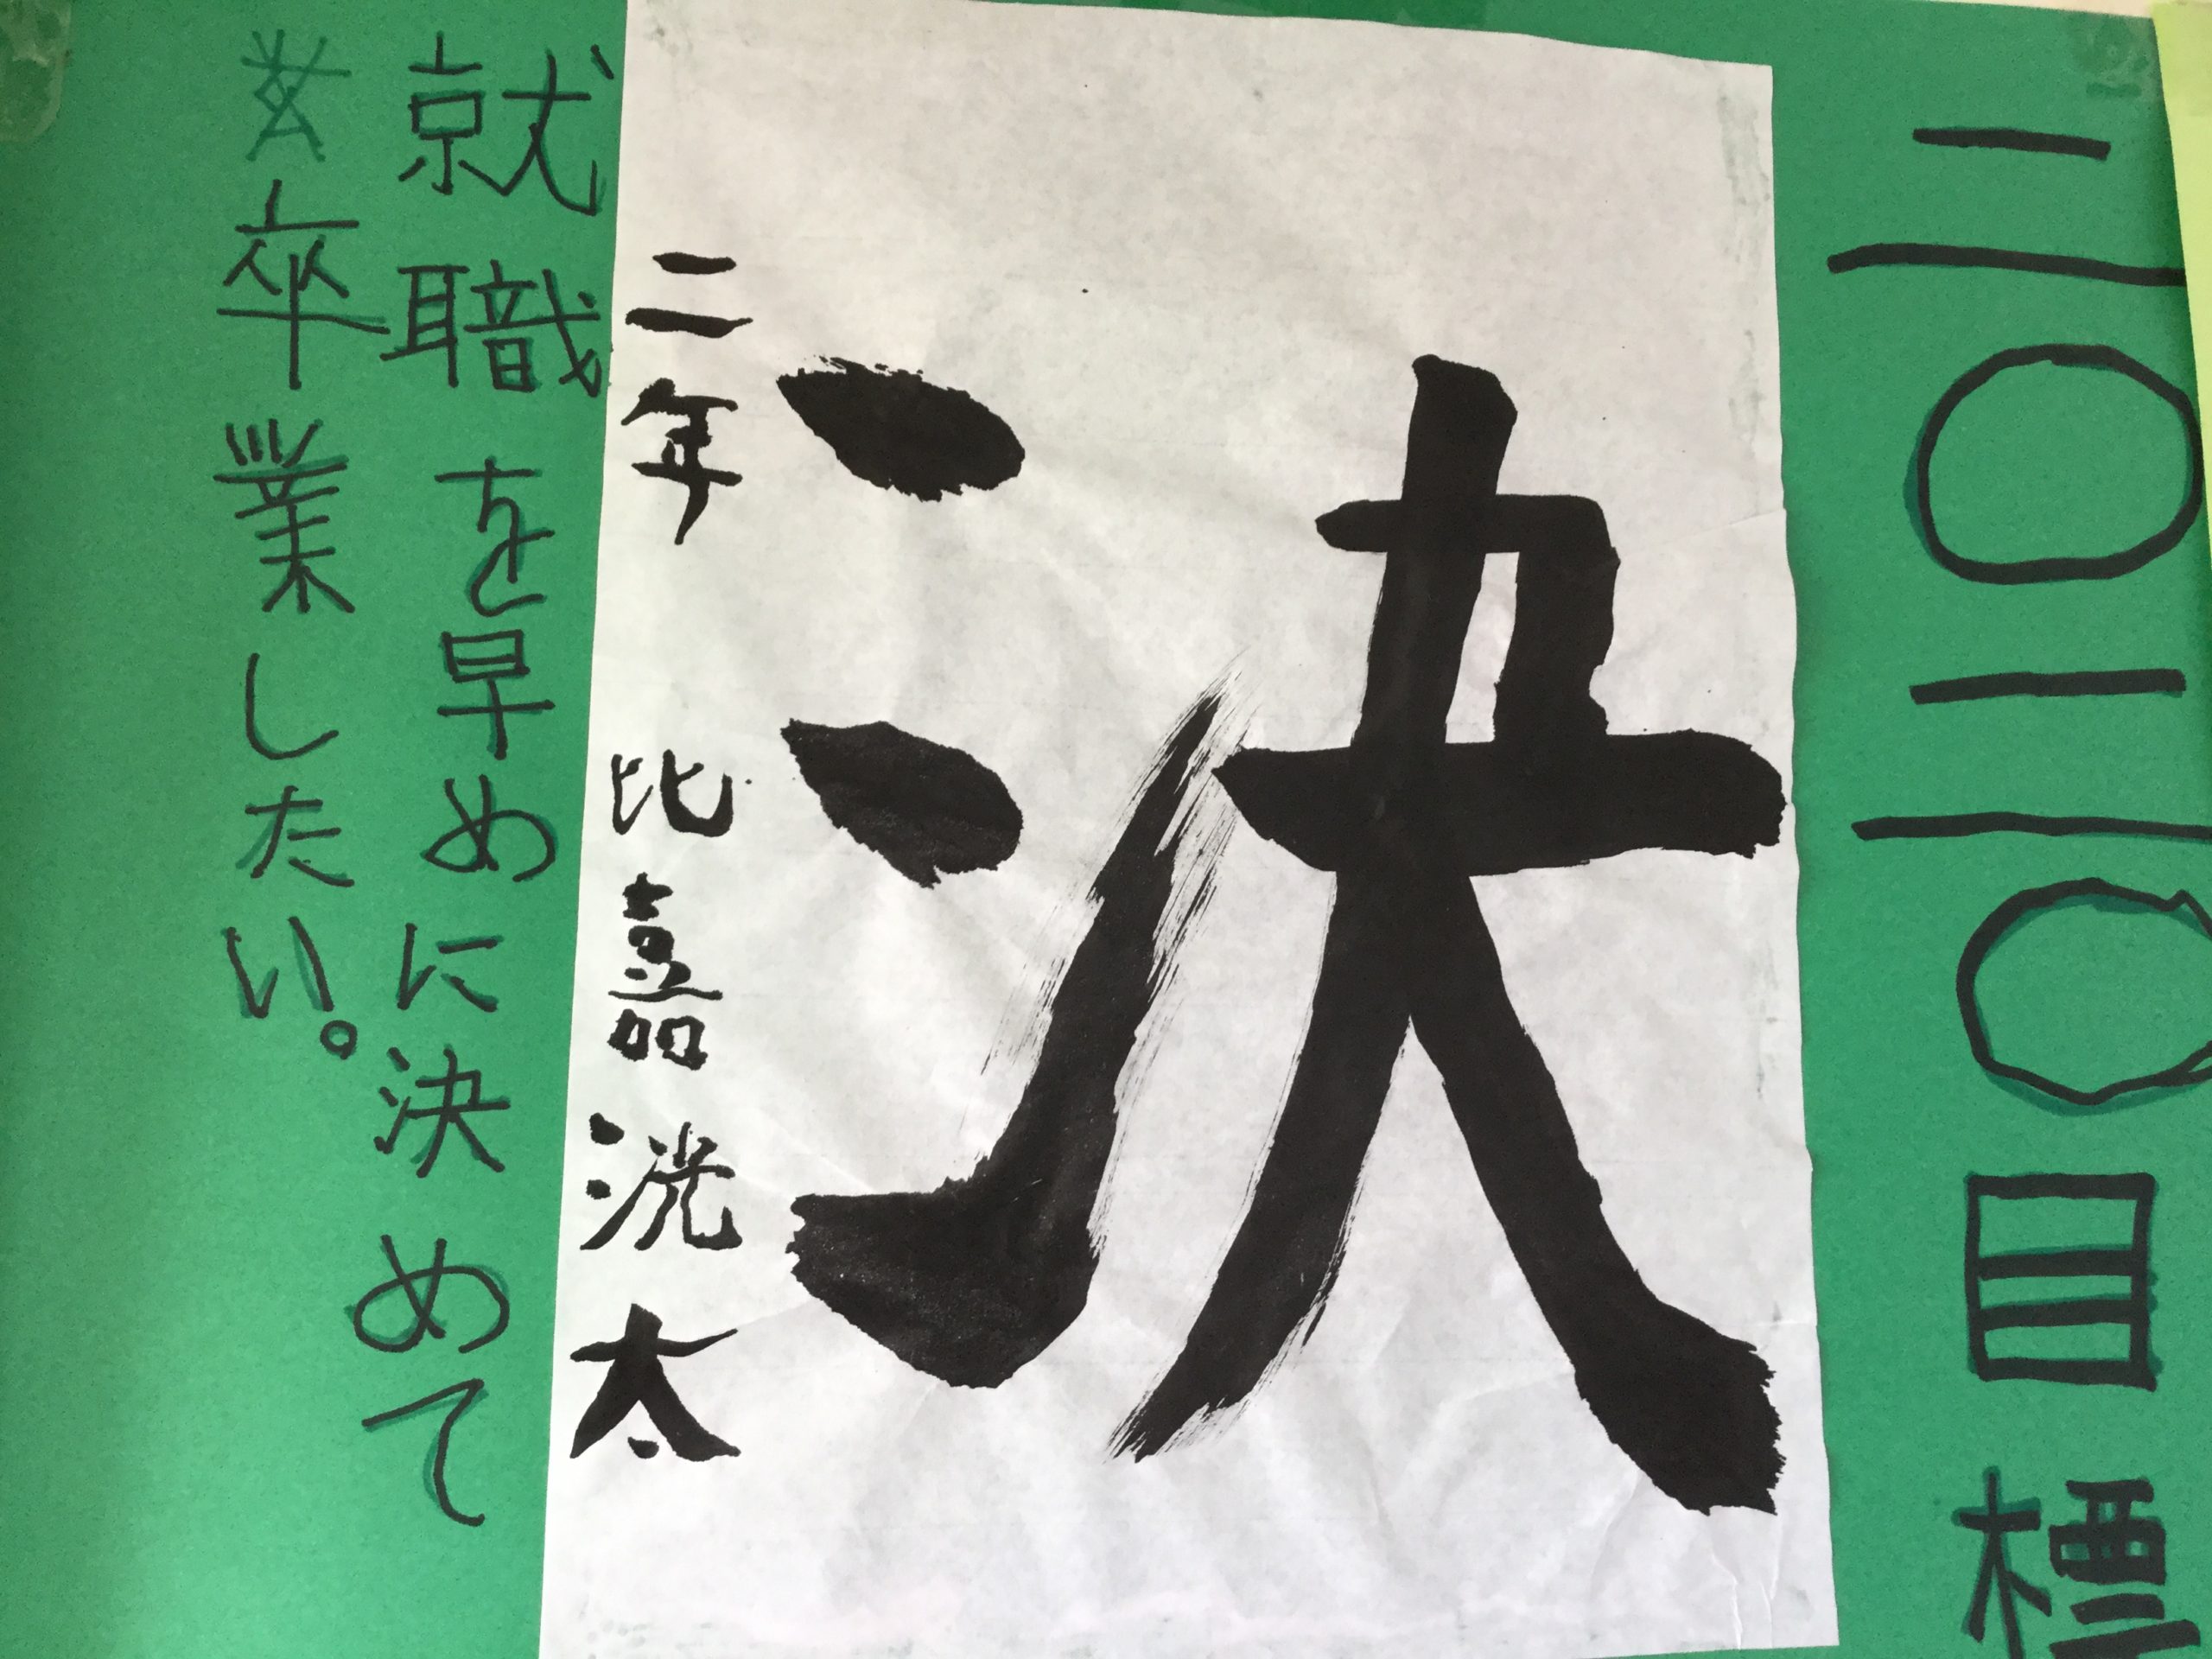 二〇二〇目標
決
二年 比嘉洸太
就職を早めに決めて
卒業したい。